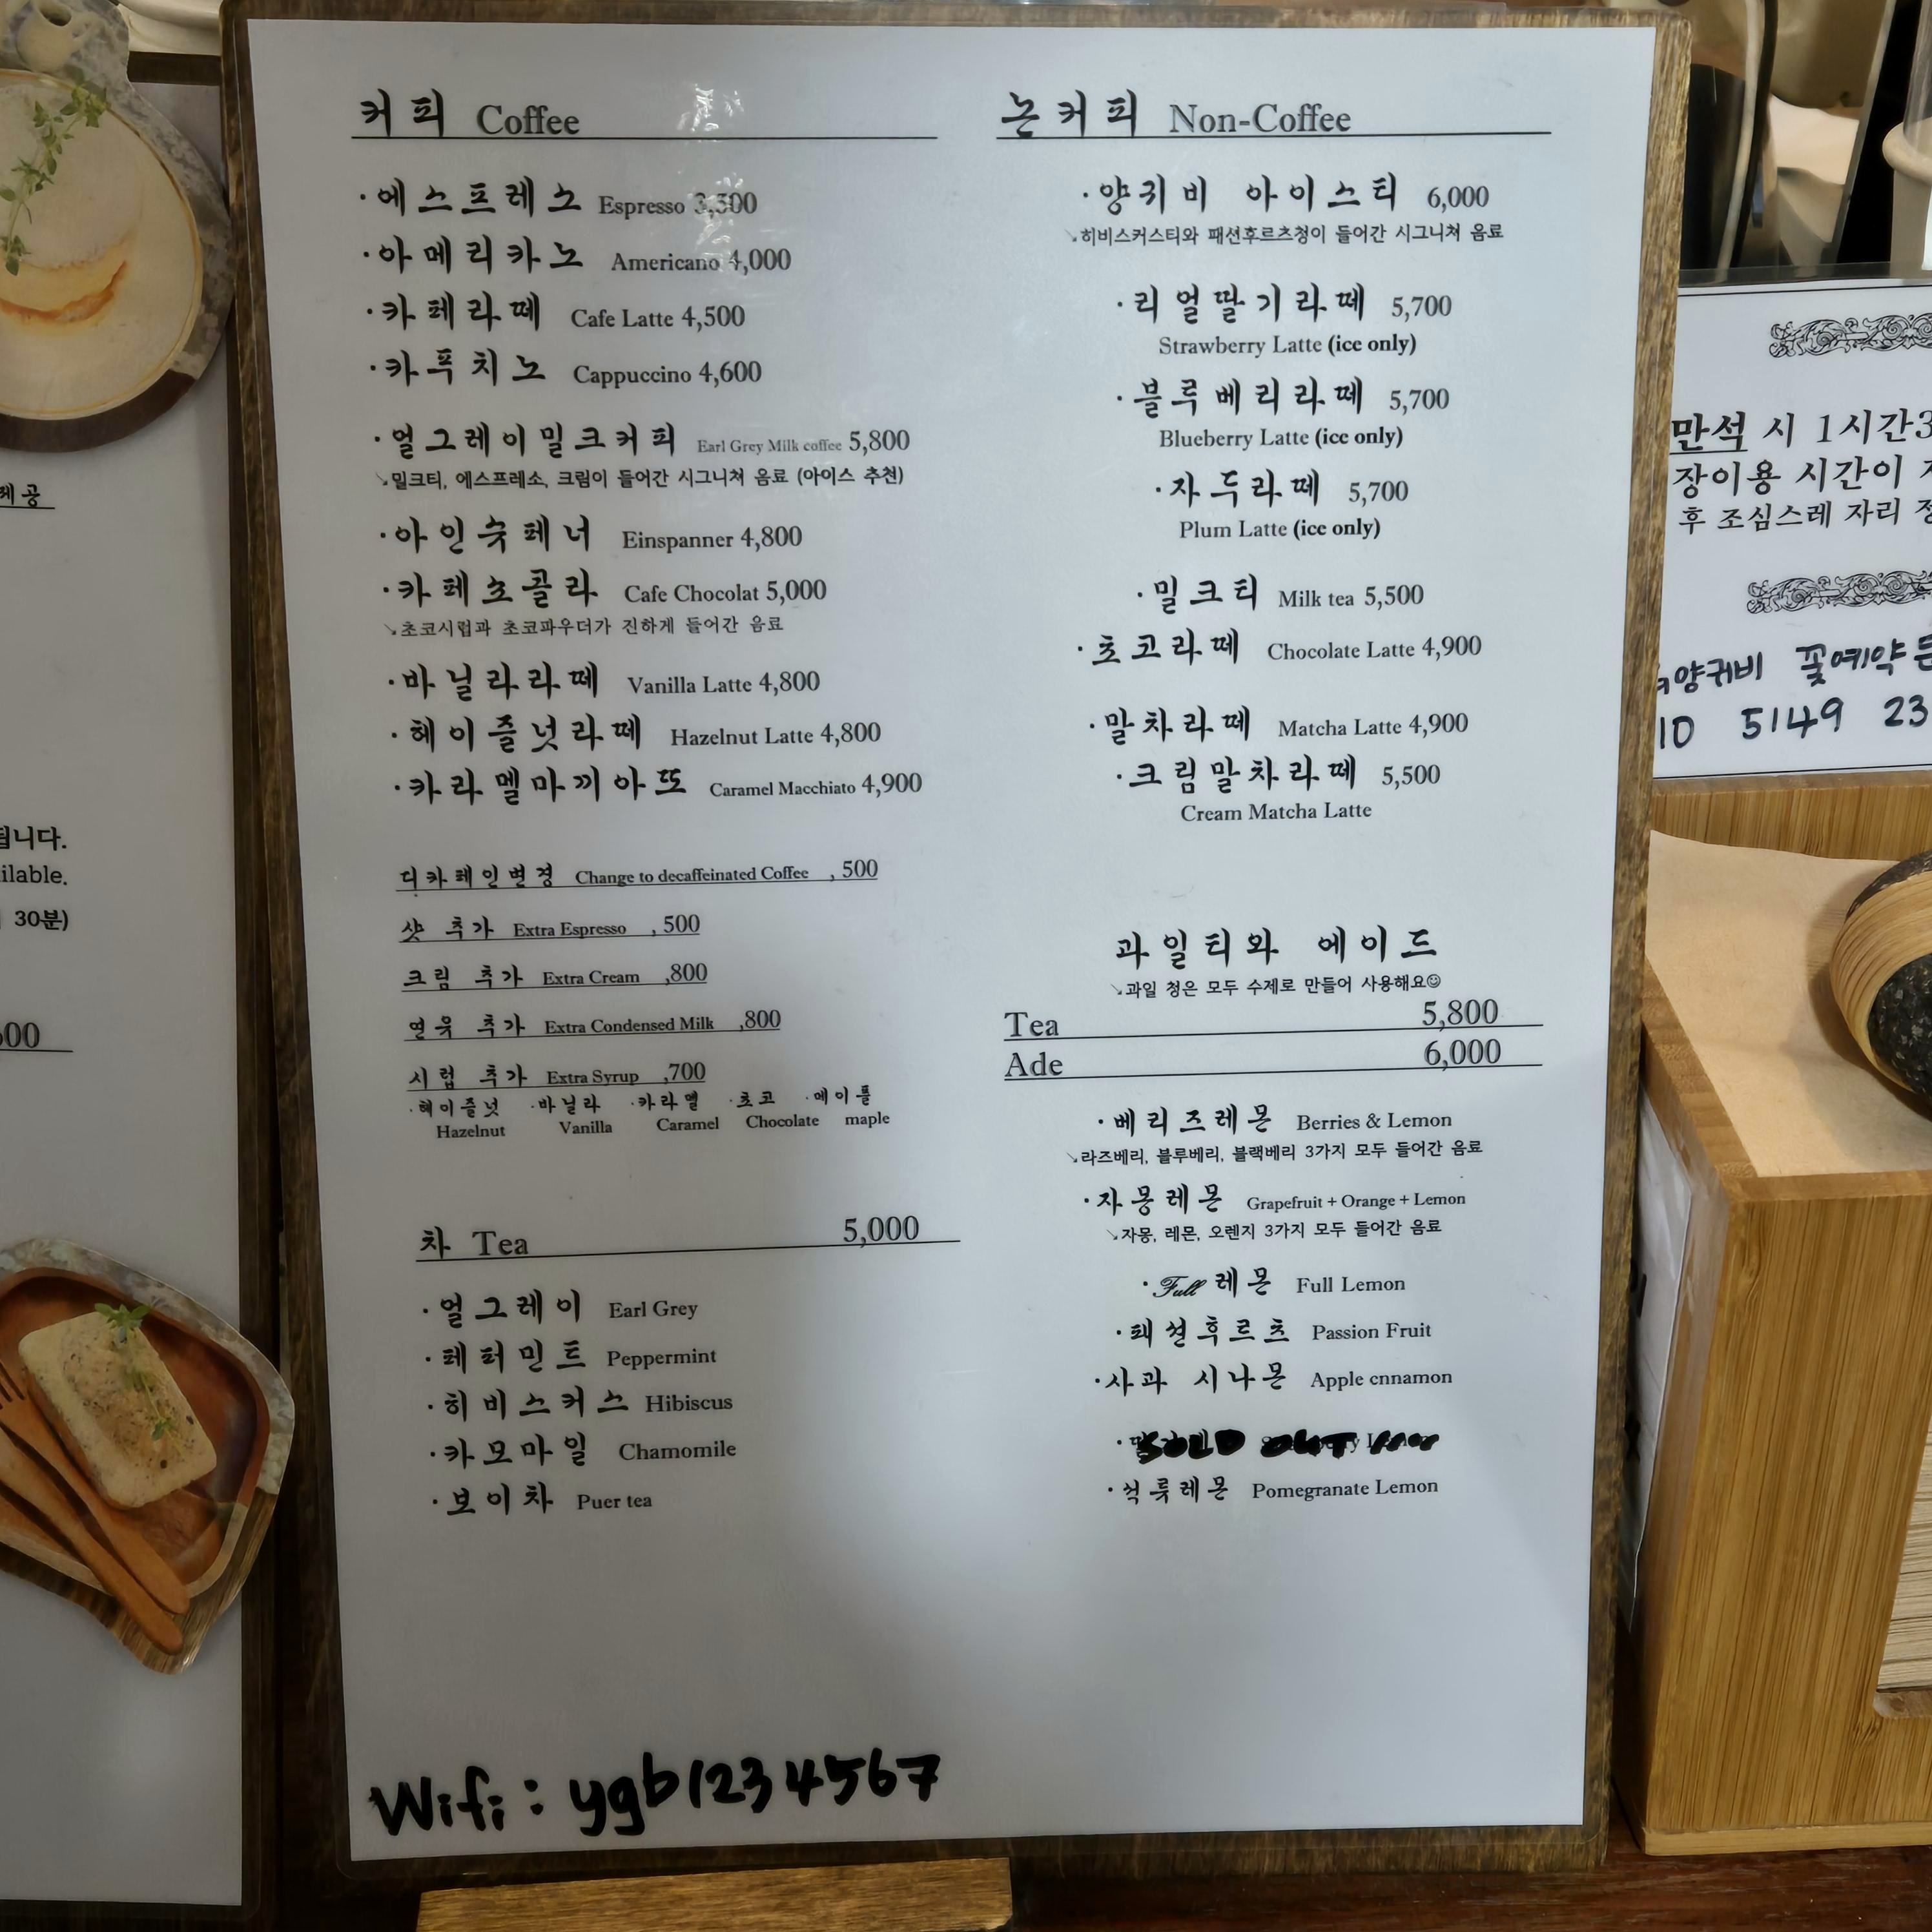 커피 Coffee
·에스프레소 Espresso 3,500
·아메리카노 Americano 4,000
·카페라떼 Cafe Latte 4,500
·카푸치노 Cappuccino 4,600
·얼그레이밀크커피 Earl Grey Milk coffee 5,800
↘밀크티, 에스프레소, 크림이 들어간 시그니쳐 음료 (아이스 추천)
·아인슈페너 Einspanner 4,800
·카페쇼콜라 Cafe Chocolat 5,000
↘초코시럽과 초코파우더가 진하게 들어간 음료
·바닐라라떼 Vanilla Latte 4,800
·헤이즐넛라떼 Hazelnut Latte 4,800
·카라멜마끼아또 Caramel Macchiato 4,900
디카페인변경 Change to decaffeinated Coffee , 500
샷 추가 Extra Espresso , 500
크림 추가 Extra Cream ,800
연유 추가 Extra Condensed Milk ,800
시럽 추가 Extra Syrup ,700
·헤이즐넛 ·바닐라 ·카라멜 ·초코 ·메이플
Hazelnut Vanilla Caramel Chocolate maple
차 Tea 5,000
·얼그레이 Earl Grey
·페퍼민트 Peppermint
·히비스커스 Hibiscus
·카모마일 Chamomile
·보이차 Puer tea
Wifi : ygb1234567
논커피 Non-Coffee
·양귀비 아이스티 6,000
↘히비스커스티와 패션후르츠청이 들어간 시그니쳐 음료
·리얼딸기라떼 5,700
Strawberry Latte (ice only)
·블루베리라떼 5,700
Blueberry Latte (ice only)
·자두라떼 5,700
Plum Latte (ice only)
·밀크티 Milk tea 5,500
·초코라떼 Chocolate Latte 4,900
·말차라떼 Matcha Latte 4,900
·크림말차라떼 5,500
Cream Matcha Latte
과일티와 에이드
↘과일 청은 모두 수제로 만들어 사용해요☺
Tea 5,800
Ade 6,000
·베리즈레몬 Berries & Lemon
↘라즈베리, 블루베리, 블랙베리 3가지 모두 들어간 음료
·자몽레몬 Grapefruit + Orange + Lemon
↘자몽, 레몬, 오렌지 3가지 모두 들어간 음료
·Full레몬 Full Lemon
·패션후르츠 Passion Fruit
·사과 시나몬 Apple cnnamon
SOLD OUT
·석류레몬 Pomegranate Lemon
제공
됩니다.
ilable.
30분)
00
만석 시 1시간3
장이용 시간이
후 조심스레 자리
양귀비 꽃예약
10 5149 23